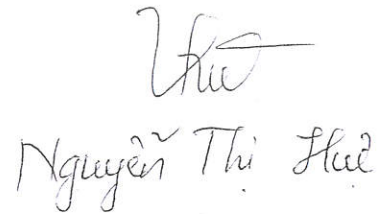 Nguyễn Thị Huệ